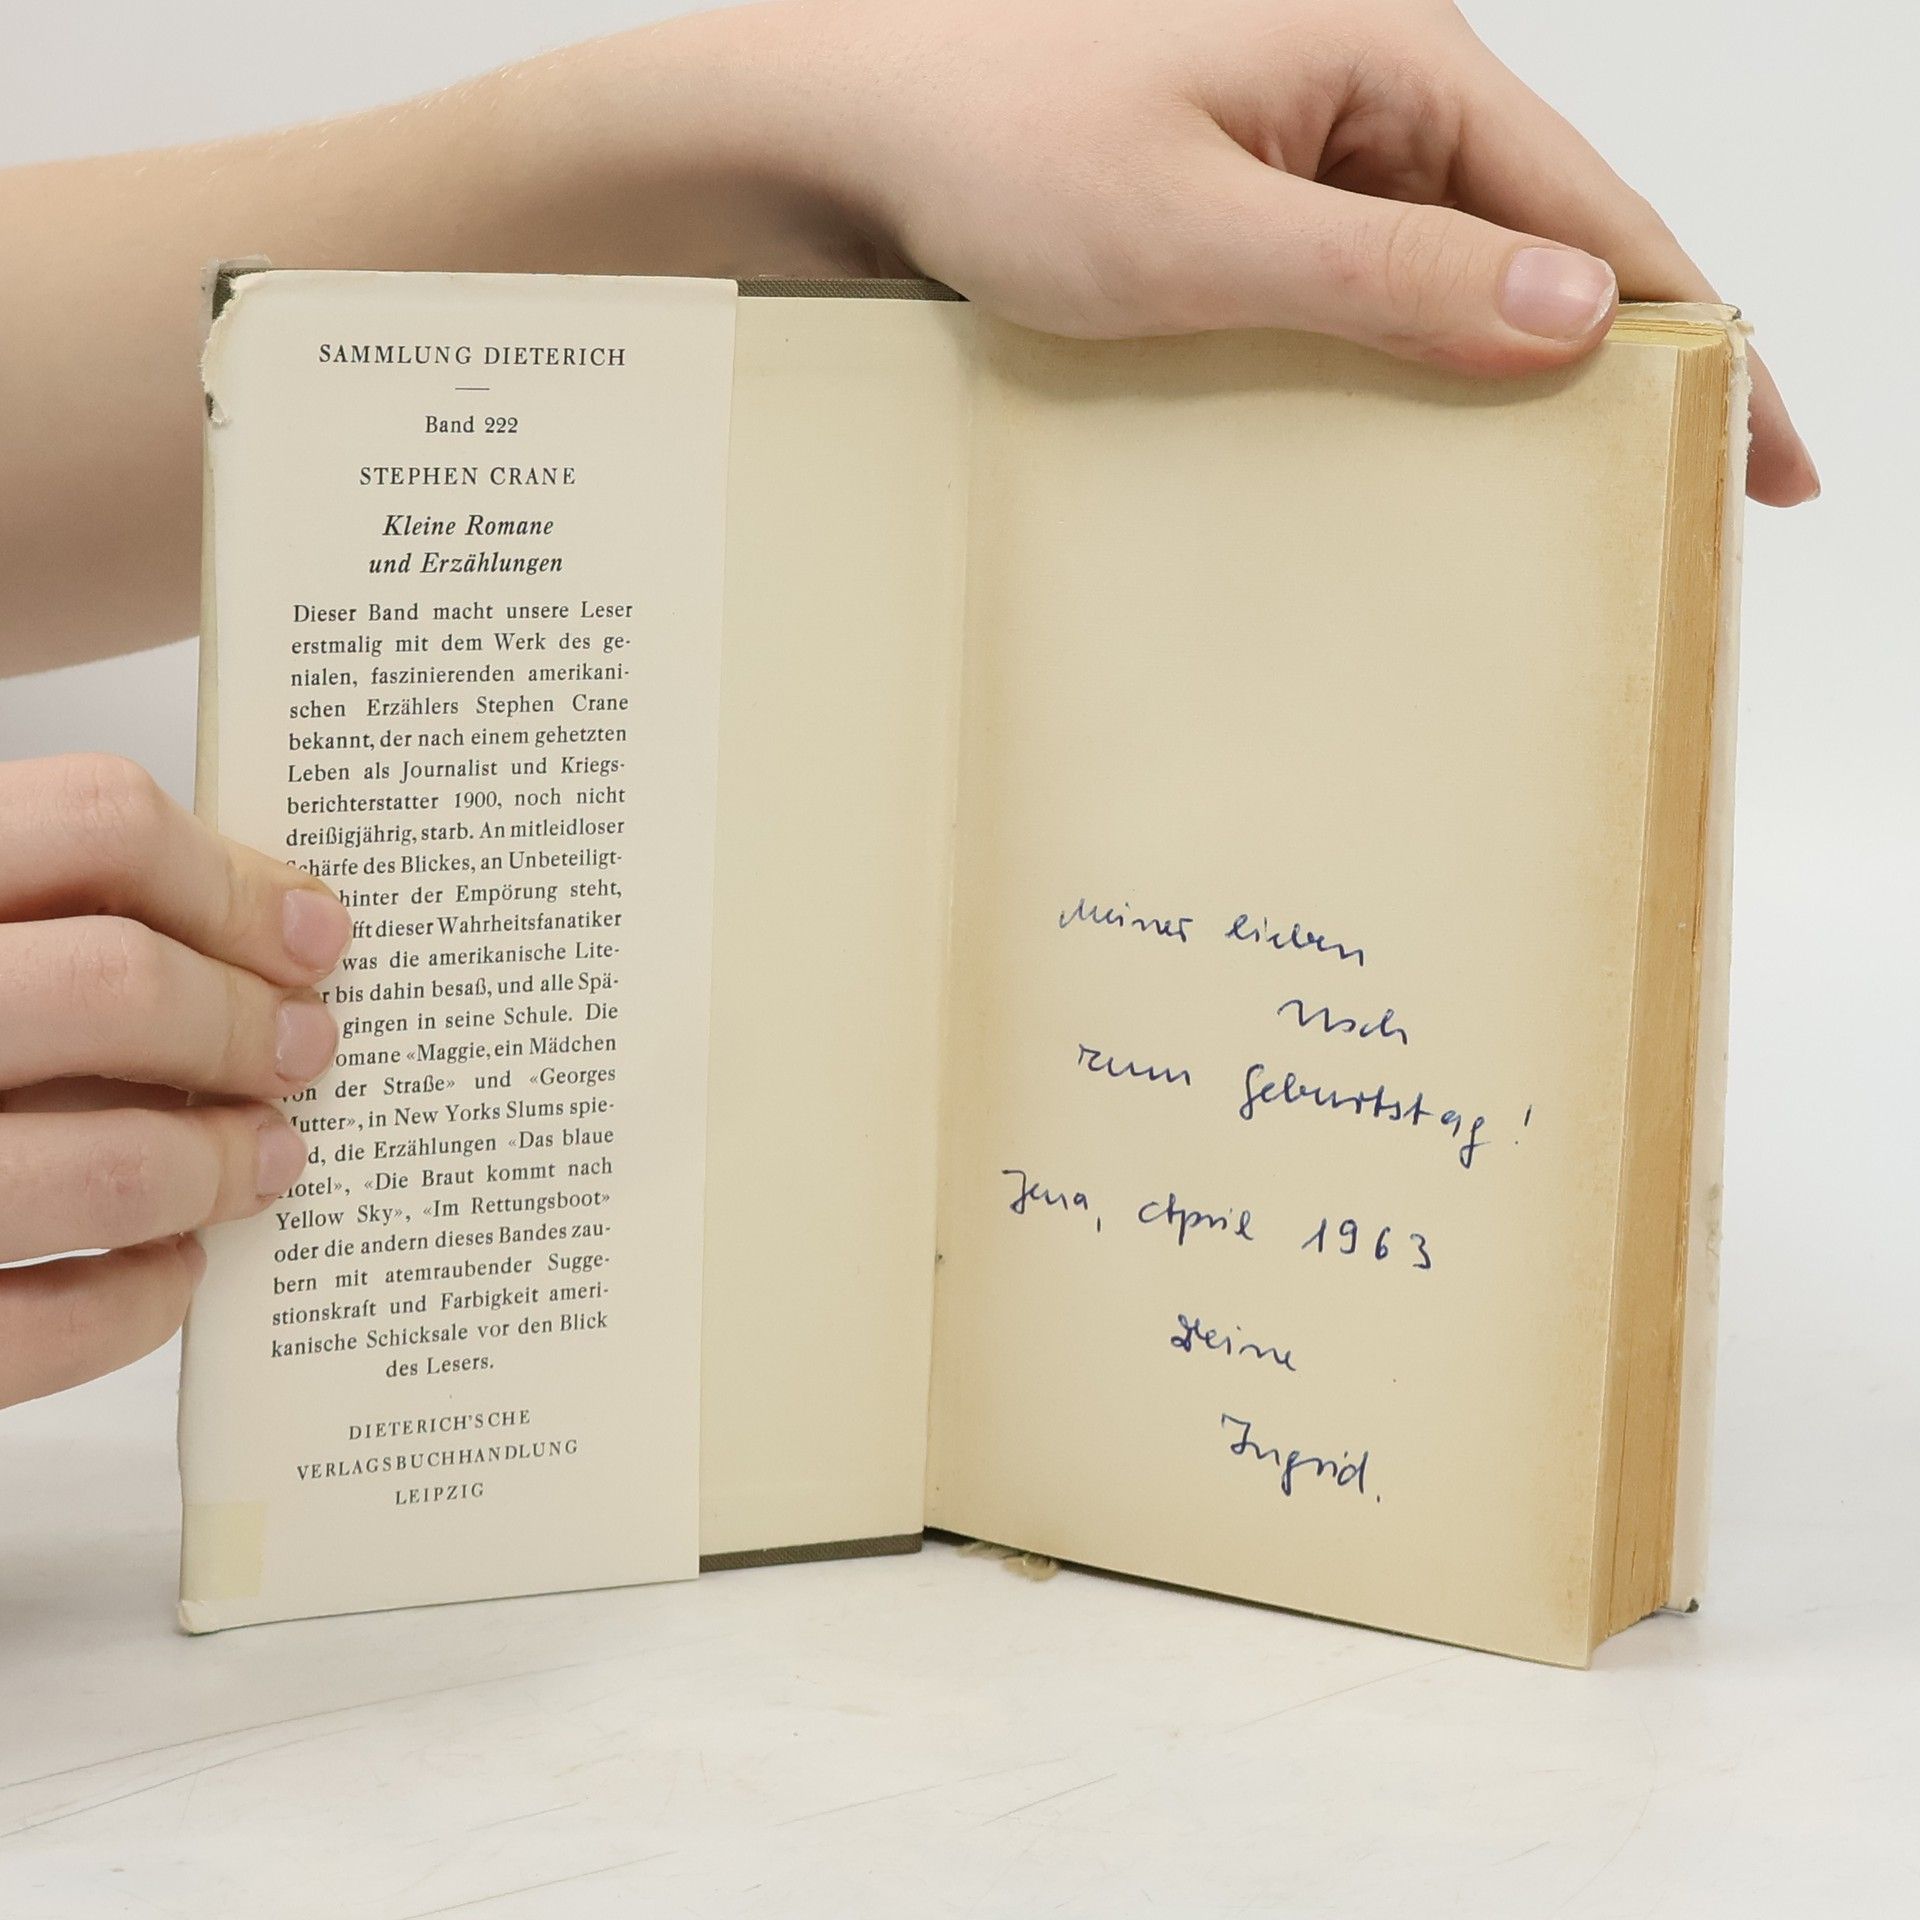 SAMMLUNG DIETERICH
Band 222
STEPHEN CRANE
Kleine Romane
und Erzählungen
Dieser Band macht unsere Leser
erstmalig mit dem Werk des ge-
nialen, faszinierenden amerikani-
schen Erzählers Stephen Crane
bekannt, der nach einem gehetzten
Leben als Journalist und Kriegs-
berichterstatter 1900, noch nicht
dreißigjährig, starb. An mitleidloser
Schärfe des Blickes, an Unbeteiligt-
hinter der Empörung steht,
fft dieser Wahrheitsfanatiker
was die amerikanische Lite-
r bis dahin besaß, und alle Spä-
gingen in seine Schule. Die
omane «Maggie, ein Mädchen
von der Straße» und «Georges
Mutter», in New Yorks Slums spie-
d, die Erzählungen «Das blaue
Hotel», «Die Braut kommt nach
Yellow Sky», «Im Rettungsboot»
oder die andern dieses Bandes zau-
bern mit atemraubender Sugge-
stionskraft und Farbigkeit ameri-
kanische Schicksale vor den Blick
des Lesers.
DIETERICH'SCHE
VERLAGSBUCHHANDLUNG
LEIPZIG
Meiner lieben
Usch
zum Geburtstag!
Jena, April 1963
Deine
Ingrid.